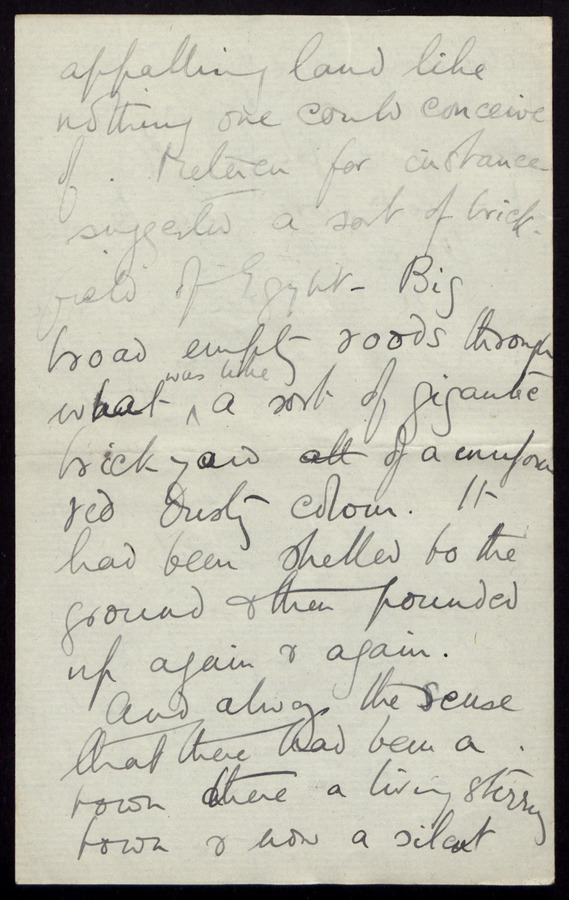 appalling land like
nothing one could conceive
of. Meteren for instance
suggested a sort of brick-
field of Egypt - Big
broad empty roads through
was like
what ^ a sort of gigantic
brick yard all of a uniform
red dusty colour. It
had been shelled to the
ground & then pounded
up again & again.
And always the sense
that there had been a
town there a living stirring
town & now a silent